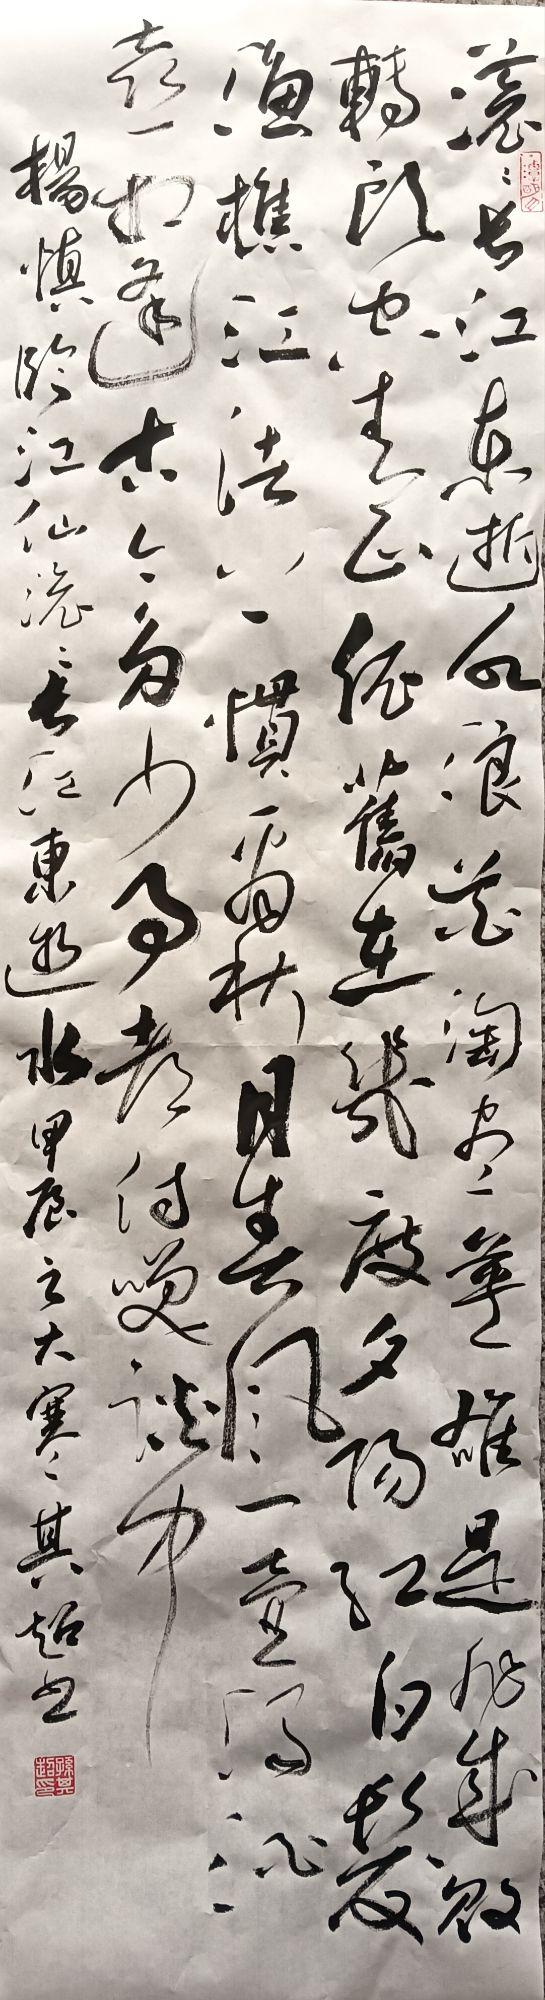 滚〻长江东逝水浪花淘尽英雄是非成败
转头空青山依旧在几度夕阳红白发
渔樵江渚上惯看秋月春风一壶浊酒
喜相逢古今多少事都付笑谈中
杨慎临江仙滚〻长江东逝水甲辰之大寒〻其超书
孙其超印